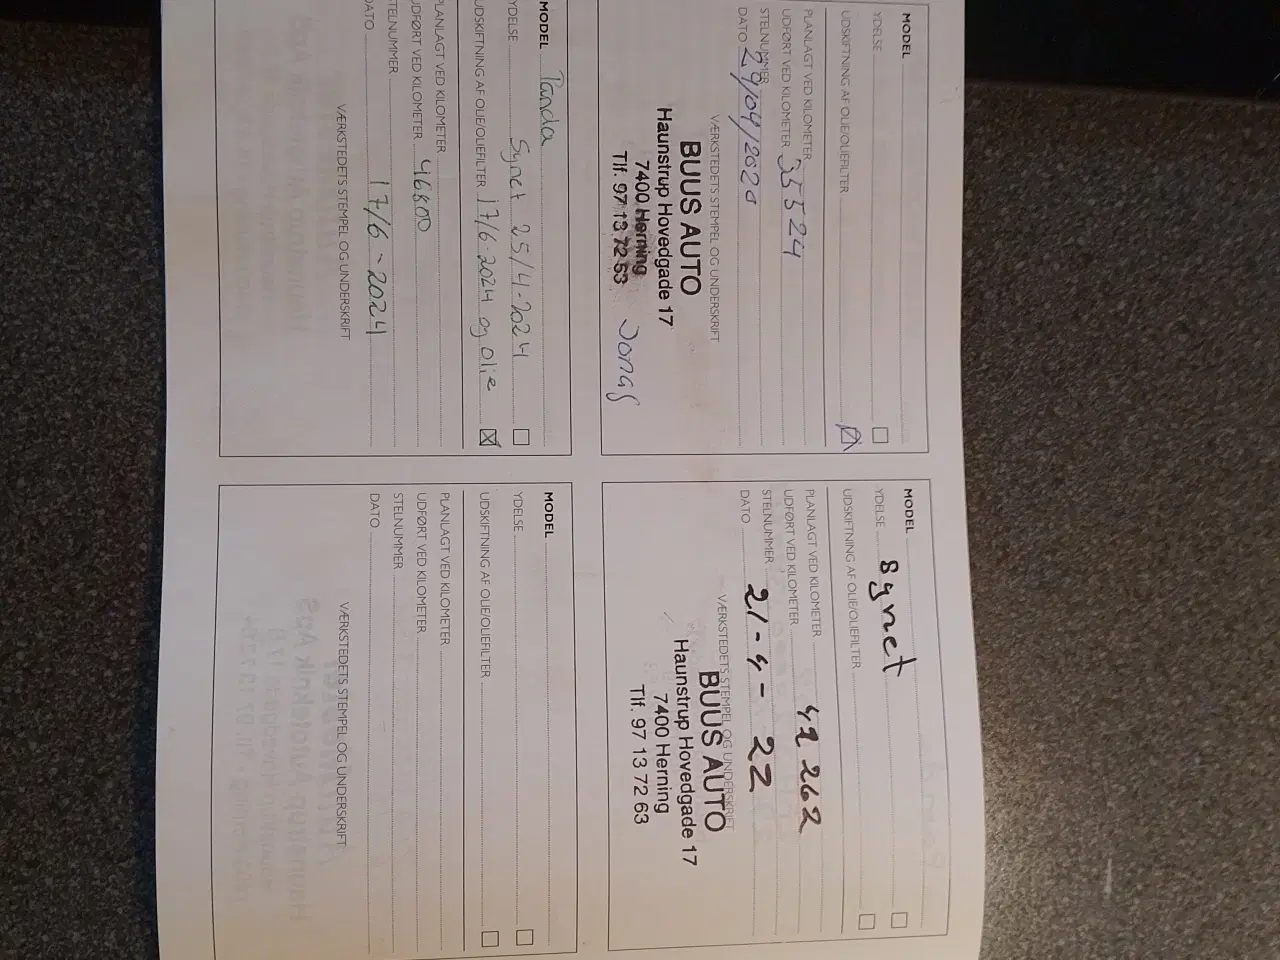 MODEL
YDELSE
UDSKIFTNING AF OLIE/OLIEFILTER
PLANLAGT VED KILOMETER
UDFØRT VED KILOMETER 35524
STELNUMMER
DATO 29/04/2020
VÆRKSTEDETS STEMPEL OG UNDERSKRIFT
BUUS AUTO
Haunstrup Hovedgade 17
7400 Herning
Tlf. 97 13 72 63
Jonas
MODEL
YDELSE Synet
UDSKIFTNING AF OLIE/OLIEFILTER
PLANLAGT VED KILOMETER
UDFØRT VED KILOMETER 42262
STELNUMMER
DATO 21-4-22
VÆRKSTEDETS STEMPEL OG UNDERSKRIFT
BUUS AUTO
Haunstrup Hovedgade 17
7400 Herning
Tlf. 97 13 72 63
MODEL Panda
YDELSE Synet 25/4-2024
UDSKIFTNING AF OLIE/OLIEFILTER 17/6-2024 og olie
PLANLAGT VED KILOMETER
UDFØRT VED KILOMETER 46800
STELNUMMER
DATO 17/6-2024
VÆRKSTEDETS STEMPEL OG UNDERSKRIFT
MODEL
YDELSE
UDSKIFTNING AF OLIE/OLIEFILTER
PLANLAGT VED KILOMETER
UDFØRT VED KILOMETER
STELNUMMER
DATO
VÆRKSTEDETS STEMPEL OG UNDERSKRIFT